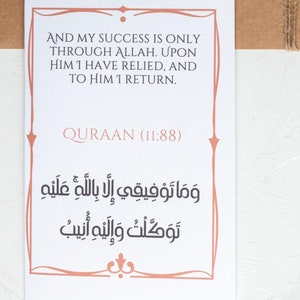 And my success is only
through Allah. Upon
Him I have relied, and
to Him I return.
Quraan (11:88)
وَمَا تَوْفِيقِي إِلَّا بِاللَّهِ ۚ عَلَيْهِ
تَوَكَّلْتُ وَإِلَيْهِ أُنِيبُ